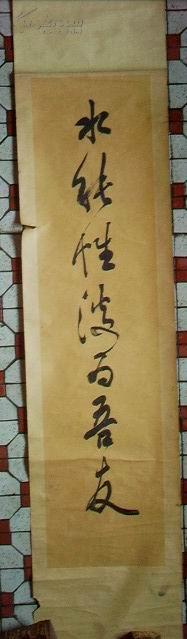 水能性淡为吾友